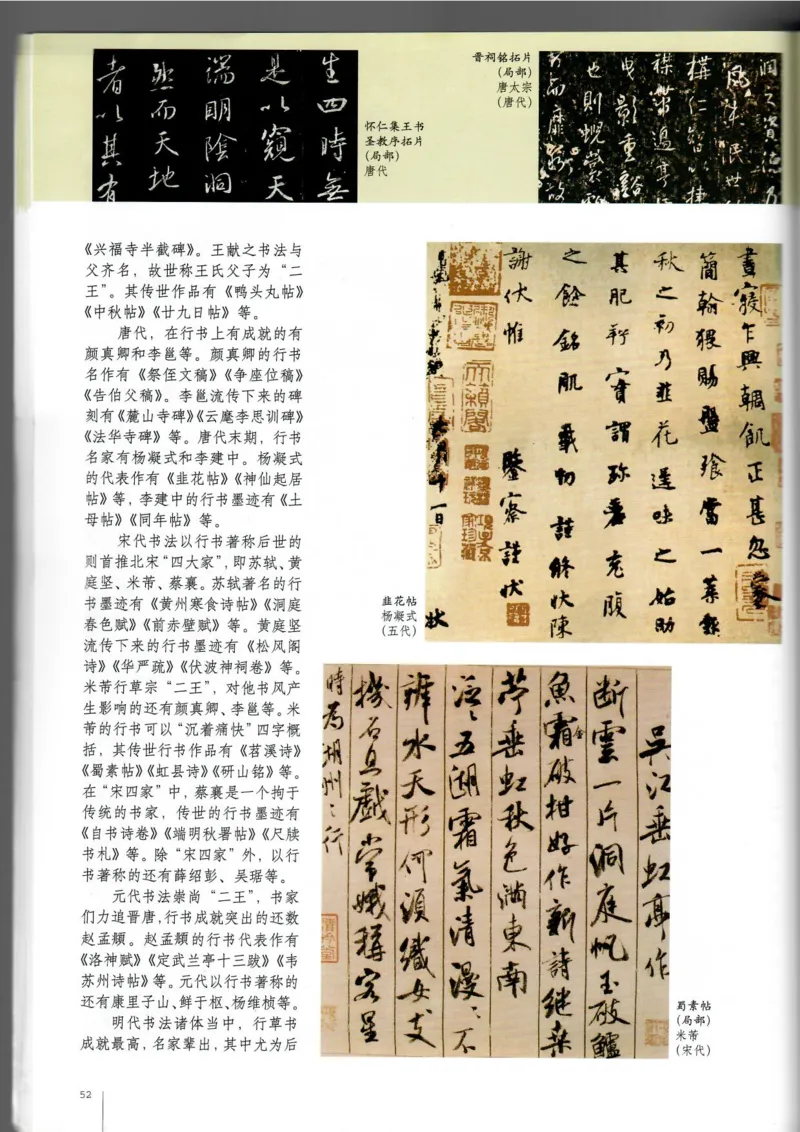 生四時無
是以窺天
端明陰洞
然而天地
者以其有
怀仁集王书
圣教序拓片
(局部)
唐代
晋祠铭拓片
(局部)
唐太宗
(唐代)
《兴福寺半截碑》。王献之书法与
父齐名，故世称王氏父子为“二
王”。其传世作品有《鸭头丸帖》
《中秋帖》《廿九日帖》等。
唐代，在行书上有成就的有
颜真卿和李邕等。颜真卿的行书
名作有《祭侄文稿》《争座位稿》
《告伯父稿》。李邕流传下来的碑
刻有《麓山寺碑》《云麾李思训碑》
《法华寺碑》等。唐代末期，行书
名家有杨凝式和李建中。杨凝式
的代表作有《韭花帖》《神仙起居
帖》等，李建中的行书墨迹有《土
母帖》《同年帖》等。
宋代书法以行书著称后世的
则首推北宋“四大家”，即苏轼、黄
庭坚、米芾、蔡襄。苏轼著名的行
书墨迹有《黄州寒食诗帖》《洞庭
春色赋》《前赤壁赋》等。黄庭坚
流传下来的行书墨迹有《松风阁
诗》《华严疏》《伏波神祠卷》等。
米芾行草宗“二王”，对他书风产
生影响的还有颜真卿、李邕等。米
芾的行书可以“沉着痛快”四字概
括，其传世行书作品有《苕溪诗》
《蜀素帖》《虹县诗》《研山铭》等。
在“宋四家”中，蔡襄是一个拘于
传统的书家，传世的行书墨迹有
《自书诗卷》《端明秋署帖》《尺牍
书札》等。除“宋四家”外，以行
书著称的还有薛绍彭、吴琚等。
元代书法崇尚“二王”，书家
们力追晋唐，行书成就突出的还数
赵孟頫。赵孟頫的行书代表作有
《洛神赋》《定武兰亭十三跋》《韦
苏州诗帖》等。元代以行书著称的
还有康里子山、鲜于枢、杨维桢等。
明代书法诸体当中，行草书
成就最高，名家辈出，其中尤为后
晝寢乍興輖飢正甚忽蒙
簡翰猥賜盤飧當一葉報
秋之初乃韭花逞味之始助
其肥羜實謂珍羞充腹
之餘銘肌載切謹修狀陳
謝伏惟鑒察謹狀
十一日
狀
韭花帖
杨凝式
(五代)
吳江垂虹亭作
断雲一片洞庭帆玉破鱸
魚霜破柑好作新詩継桑
苧垂虹秋色滿東南
泛泛五湖霜氣清漫漫不
辨水天形何須織女支
機石且戲常娥稱客星
時為湖州之行
蜀素帖
(局部)
米芾
(宋代)
52